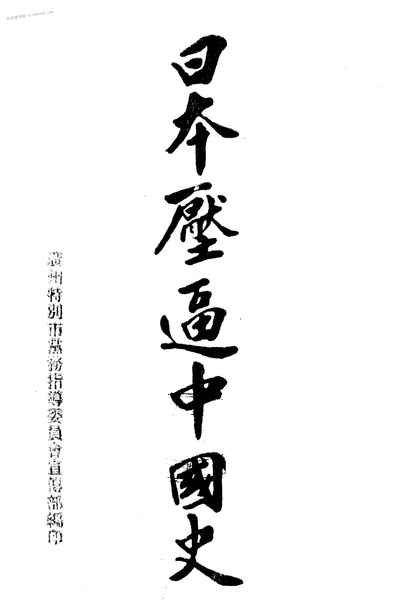 日本壓逼中國史
廣州特別市黨務指導委員會宣傳部編印